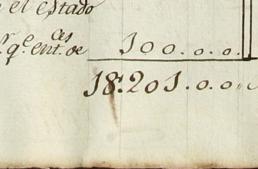 el estado
q.e ent.ces de 100.0.0.
18.201.0.0